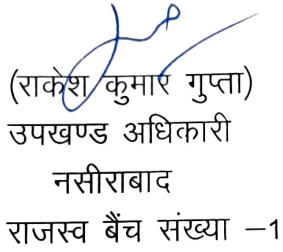 (राकेश कुमार गुप्ता)
उपखण्ड अधिकारी
नसीराबाद
राजस्व बैंच संख्या –1